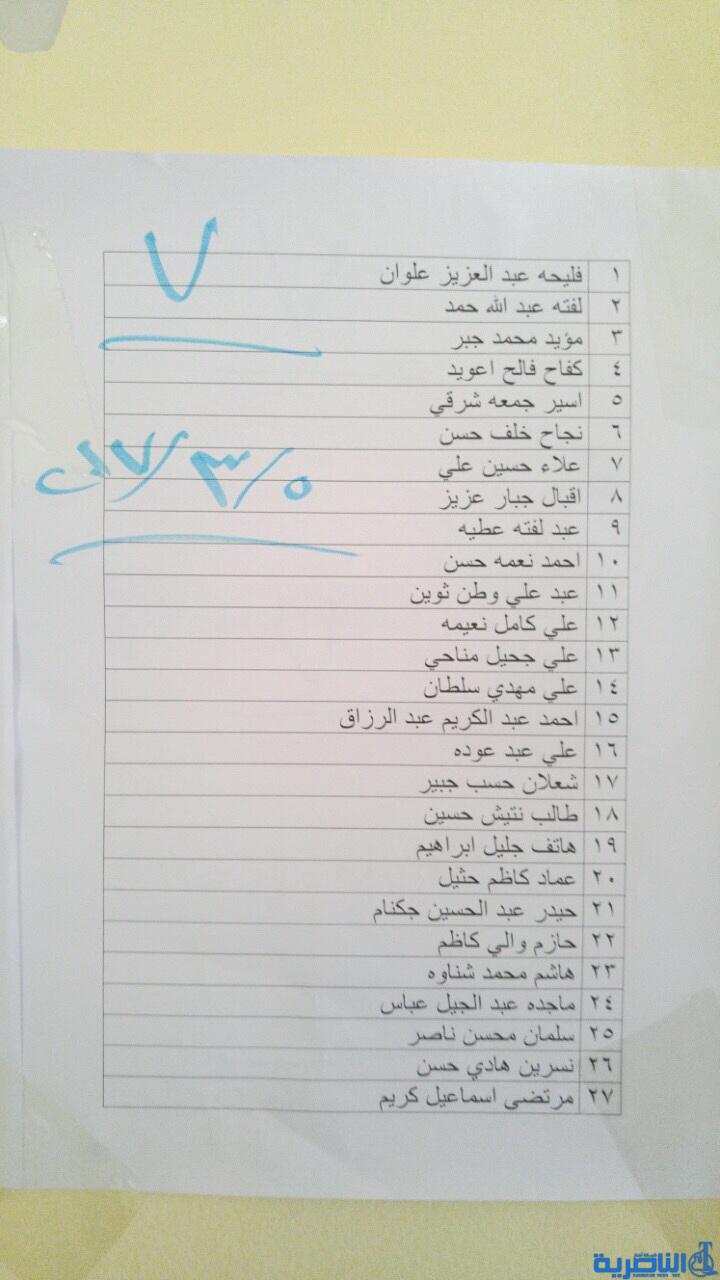 ٧
١ فليحه عبد العزيز علوان
٢ لفته عبد الله حمد
٣ مؤيد محمد جبر
٤ كفاح فالح اعويد
٥ اسير جمعه شرقي
٦ نجاح خلف حسن
٧ علاء حسين علي
٢٠١٧/٣/٥
٨ اقبال جبار عزيز
٩ عبد لفته عطيه
١٠ احمد نعمه حسن
١١ عبد علي وطن ثوين
١٢ علي كامل نعيمه
١٣ علي جحيل مناحي
١٤ علي مهدي سلطان
١٥ احمد عبد الكريم عبد الرزاق
١٦ علي عبد عوده
١٧ شعلان حسب جبير
١٨ طالب نتيش حسين
١٩ هاتف جليل ابراهيم
٢٠ عماد كاظم حثيل
٢١ حيدر عبد الحسين جكنام
٢٢ حازم والي كاظم
٢٣ هاشم محمد شناوه
٢٤ ماجده عبد الجيل عباس
٢٥ سلمان محسن ناصر
٢٦ نسرين هادي حسن
٢٧ مرتضى اسماعيل كريم
الناصرية